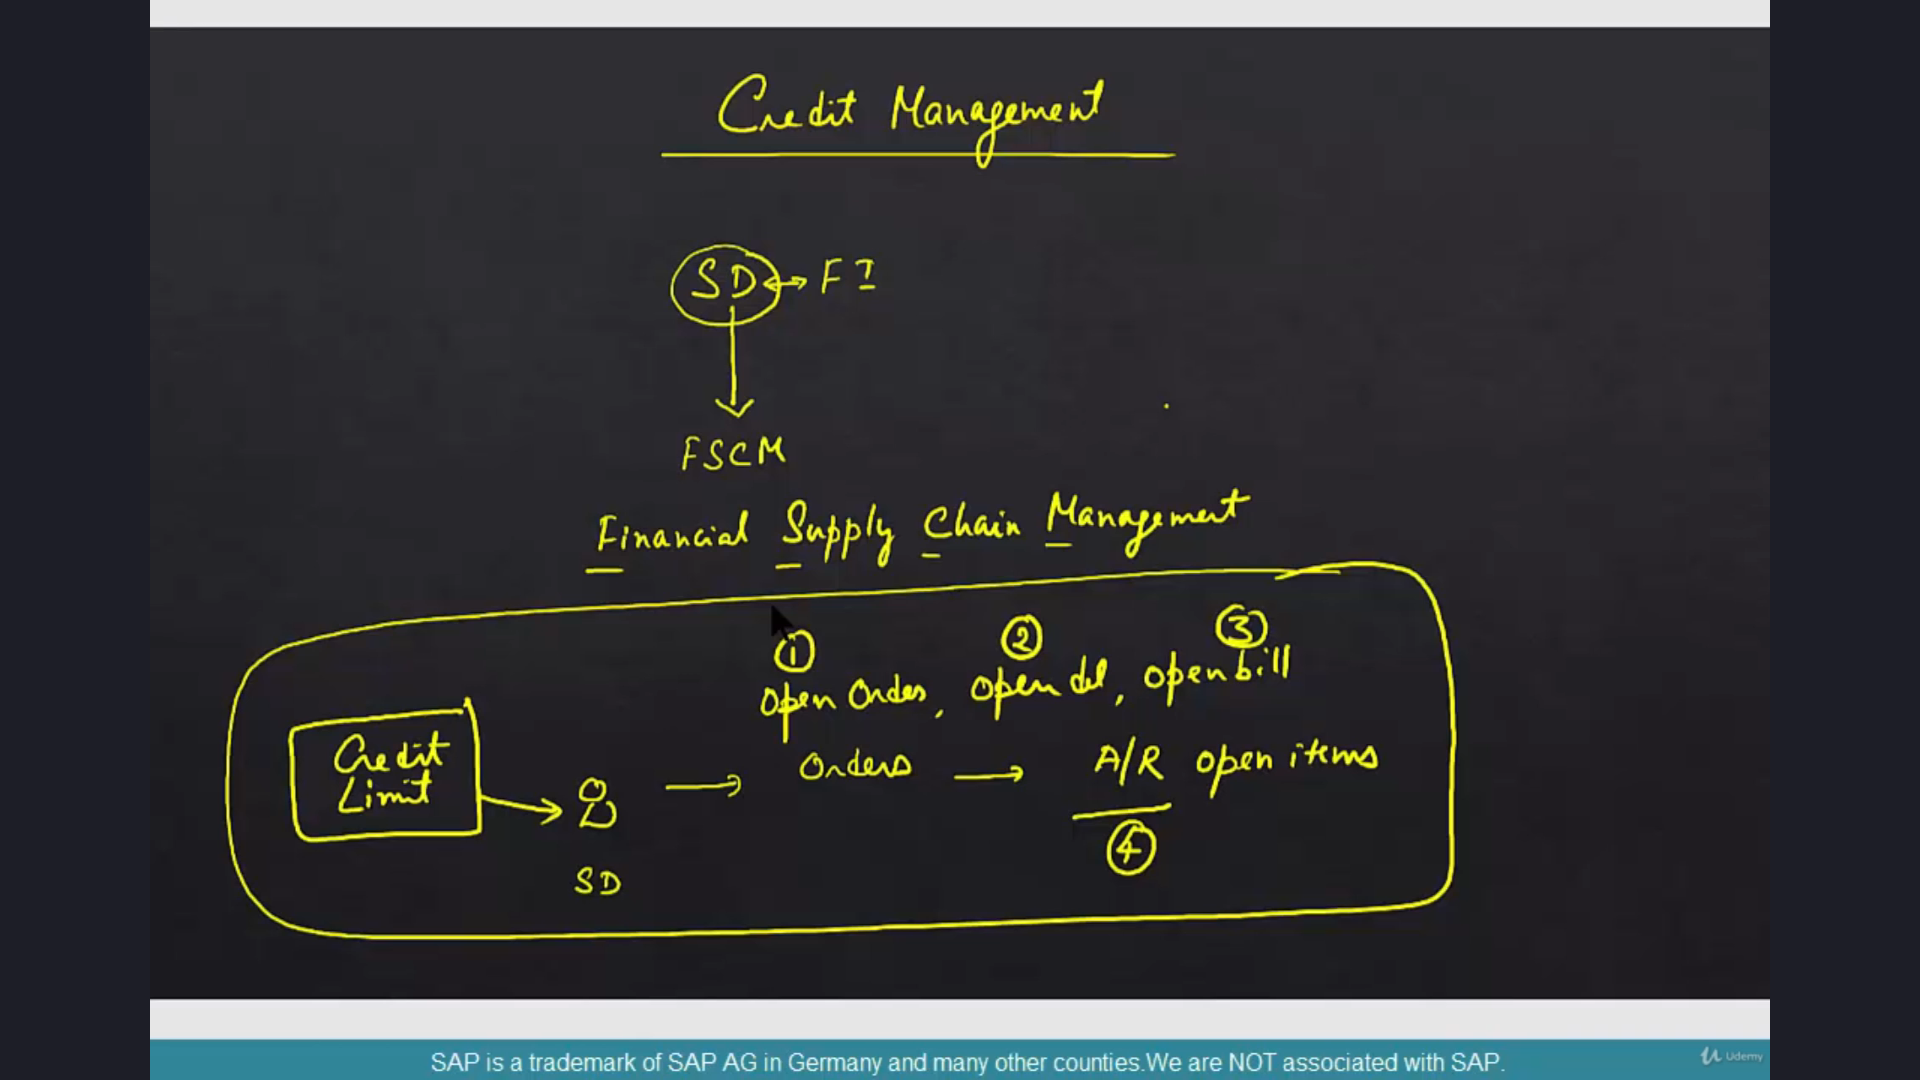 Credit Management
SD FI
FSCM
Financial Supply Chain Management
1 2 3
Open Order, open del, open bill
Credit Limit
Orders A/R open items
4
SD
SAP is a trademark of SAP AG in Germany and many other counties.We are NOT associated with SAP.
Udemy